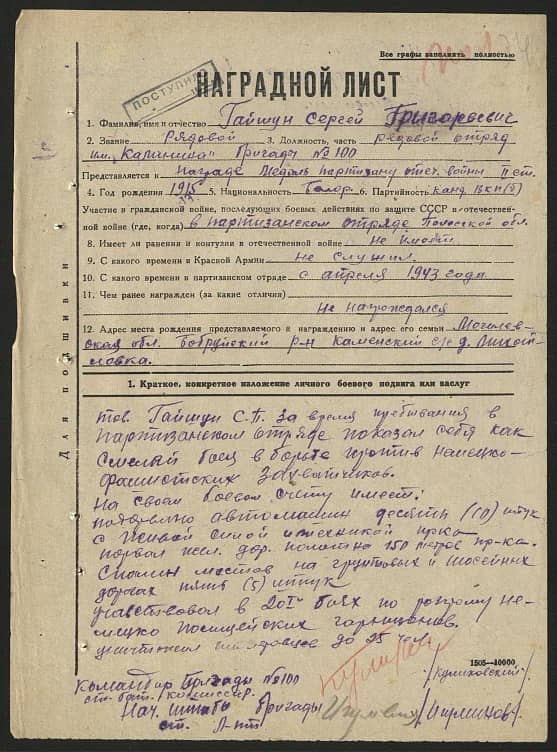 Все графы заполнять полностью
ПОСТУПИЛ
НАГРАДНОЙ ЛИСТ
1. Фамилия, имя и отчество Гайшун Сергей Григорьевич
2. Звание Рядовой 3. Должность, часть рядовой отряд
им. "Калинина" бригады № 100
Представляется к награде Медаль партизану отеч. войны II ст.
4. Год рождения 1915 5. Национальность белор. 6. Партийность канд. ВКП(б)
Участие в гражданской войне, последующих боевых действиях по защите СССР и отечествен-
ной войне (где, когда) в партизанском отряде Полесской обл.
8. Имеет ли ранения и контузии в отечественной войне не имеет
9. С какого времени в Красной Армии не служил.
10. С какого времени в партизанском отряде с апреля 1943 года
11. Чем ранее награжден (за какие отличия)
не награждался
12. Адрес места рождения представляемого к награждению и адрес его семьи Могилев-
ская обл. Бобруйский р-н Каменский с/с д. Михай-
ловка.
Для подшивки
1. Краткое, конкретное изложение личного боевого подвига или заслуг
тов. Гайшун С. за время пребывания в
партизанском отряде показал себя как
смелый боец в борьбе против немецко-
фашистских захватчиков.
На своем боевом счету имеет:
подорвано автомашин десять (10) штук
с живой силой и техникой пр-ка
порвал жел. дор. полотно 150 метров пр-ка.
Спалил мостов на грунтовых и шосейных
дорогах пять (5) штук
участвовал в боях по разгрому не-
мецко полицейских гарнизонов.
уничтожил до 25 чел.
1505—10000
Командир бригады № 100
ст. бат. комиссар /Куликовский/
Нач. штаба бригады
ст. л-нт